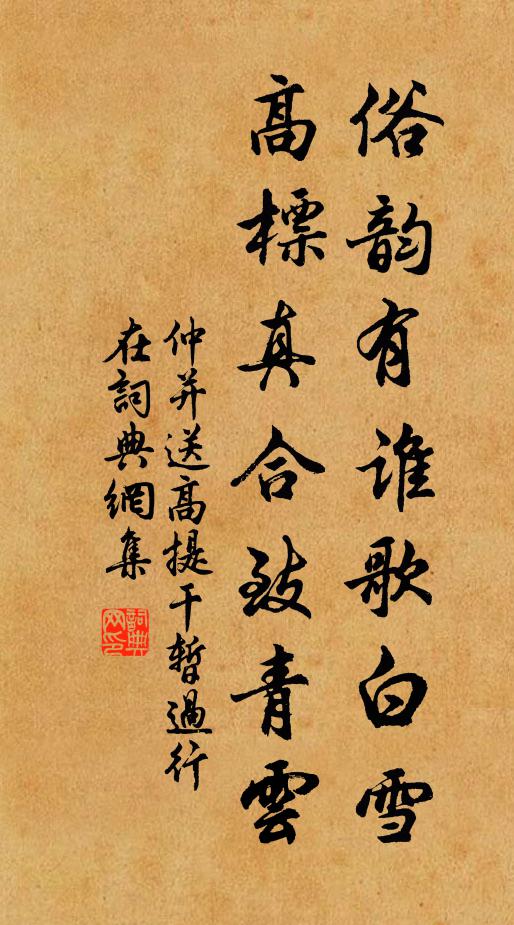 俗韵有誰歌白雪
高標真合致青雲
仲并送高提干暫過行
在詞典網集
詞典网印